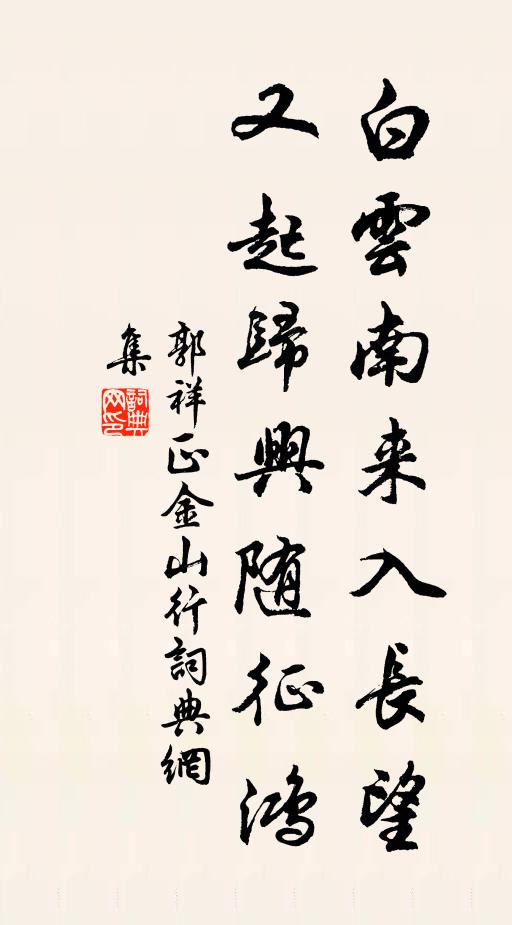 白雲南来入長望
又起歸興随征鴻
郭祥正金山行詞典網
集
詞典
网印